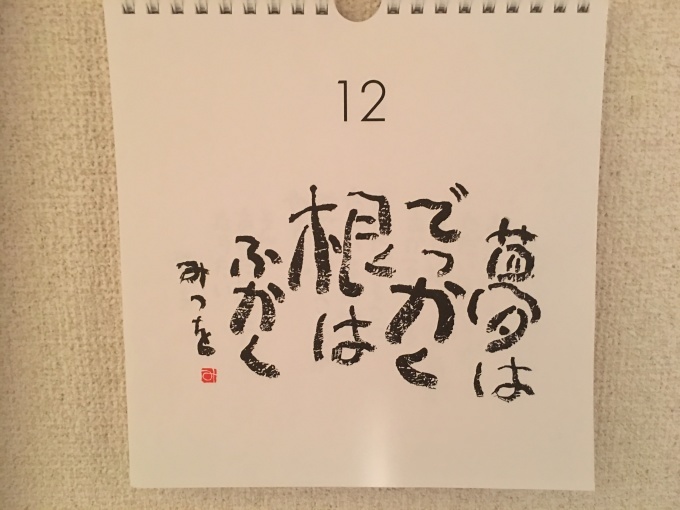 12
夢は
でっかく
根は
ふかく
みつを